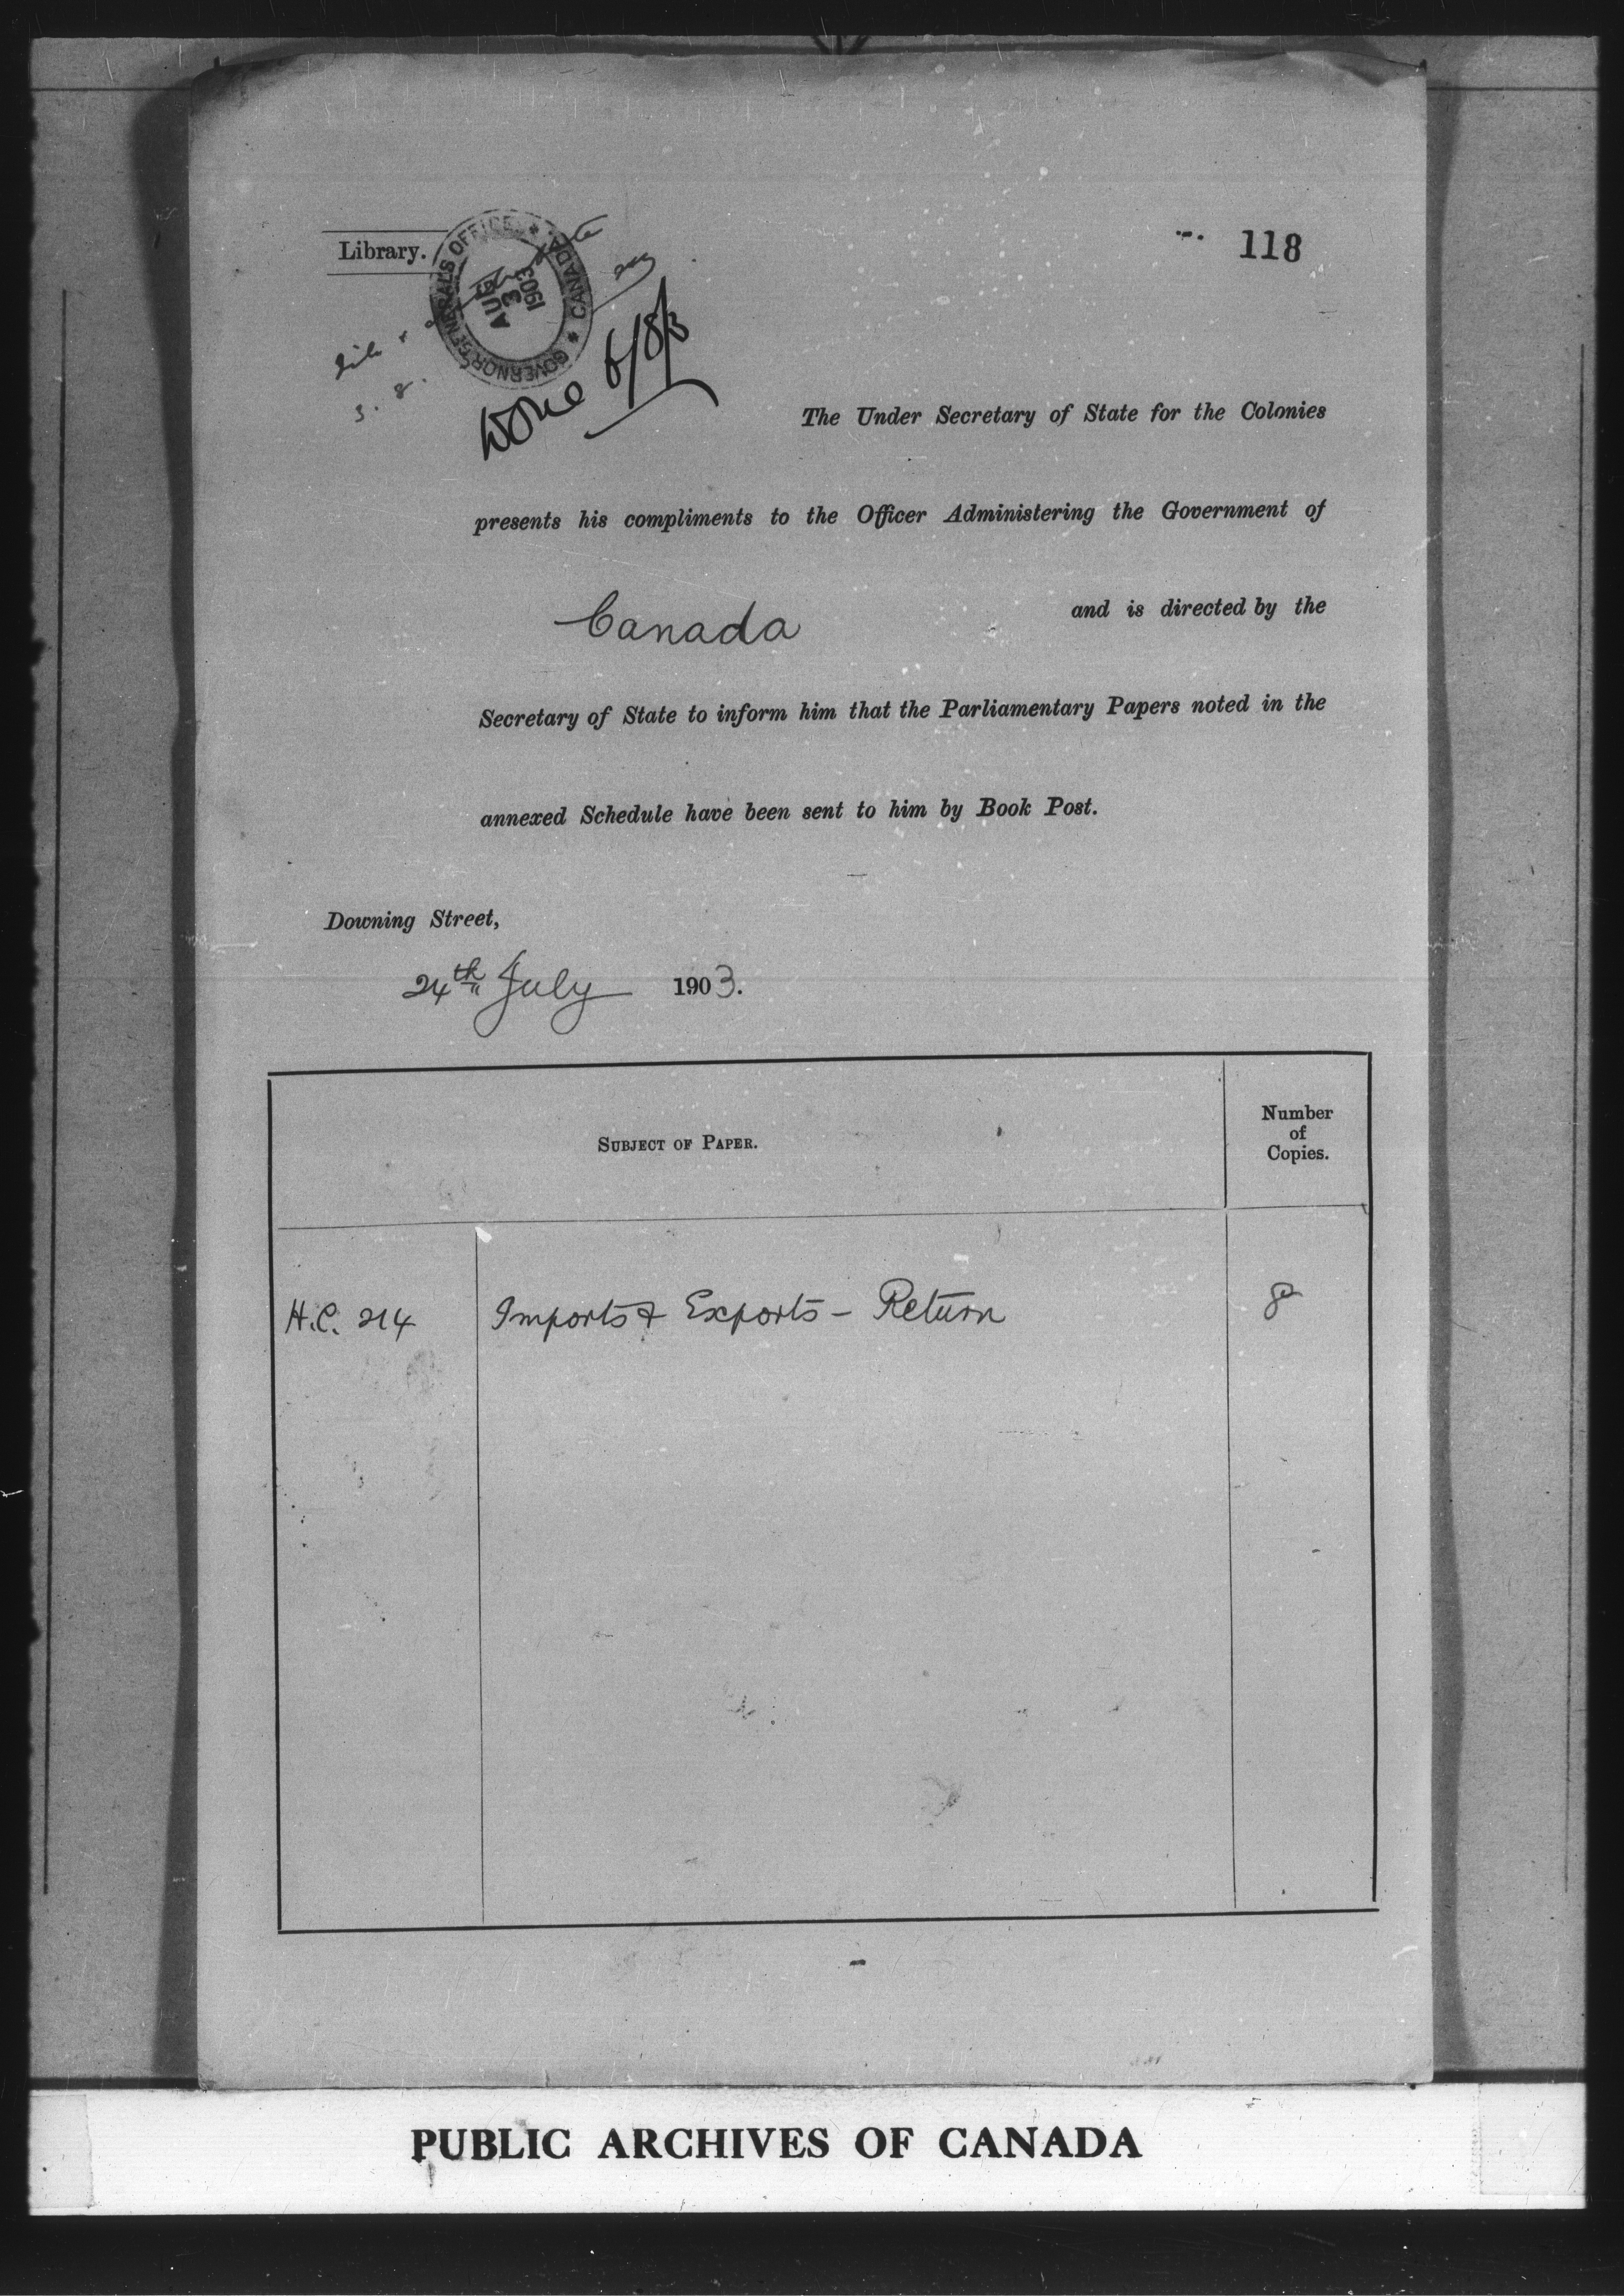 118
Library.
GOVERNOR GENERAL'S OFFICE * CANADA *
AUG 3 1903
3. 8.
Done 6/8/3
The Under Secretary of State for the Colonies
presents his compliments to the Officer Administering the Government of
Canada and is directed by the
Secretary of State to inform him that the Parliamentary Papers noted in the
annexed Schedule have been sent to him by Book Post.
Downing Street,
24th July 1903.
SUBJECT OF PAPER. Number of Copies.
H.C. 214 Imports & Exports – Return 8
PUBLIC ARCHIVES OF CANADA